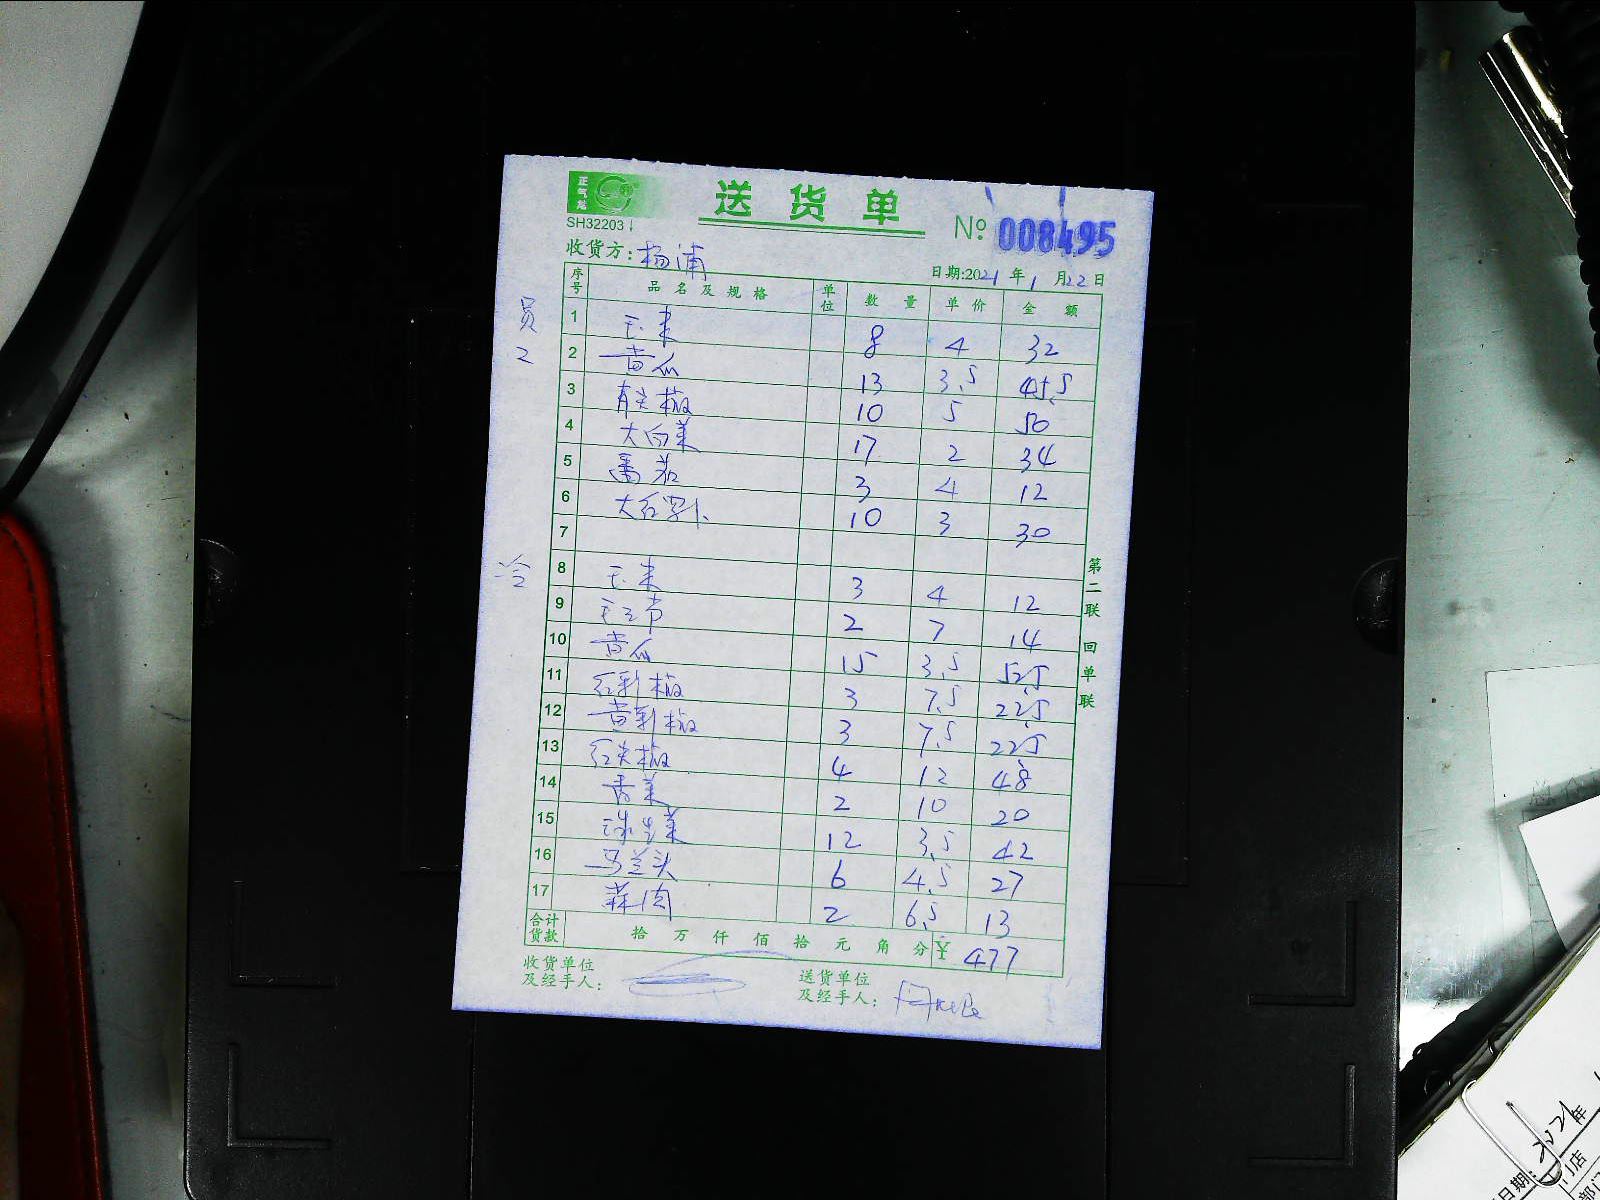 正气龙
送货单
SH32203
№ 008495
收货方: 杨浦
日期:2021年1月22日
序号 品名及规格 单位 数量 单价 金额
员工
1 玉米 8 4 32
2 黄瓜 13 3.5 45.5
3 青尖椒 10 5 50
4 大白菜 17 2 34
5 番茄 3 4 12
6 大红萝卜 10 3 30
7
冷
8 玉米 3 4 12
9 2 7 14
10 黄瓜 15 3.5 52.5
11 红彩椒 3 7.5 22.5
12 黄彩椒 3 7.5 22.5
13 红尖椒 4 12 48
14 香菜 2 10 20
15 球生菜 12 3.5 42
16 马兰头 6 4.5 27
17 蒜肉 2 6.5 13
合计货款 拾 万 仟 佰 拾 元 角 分 ¥ 477
收货单位及经手人:
送货单位及经手人:
第二联 回单联
2021年
日期:
门店
部门